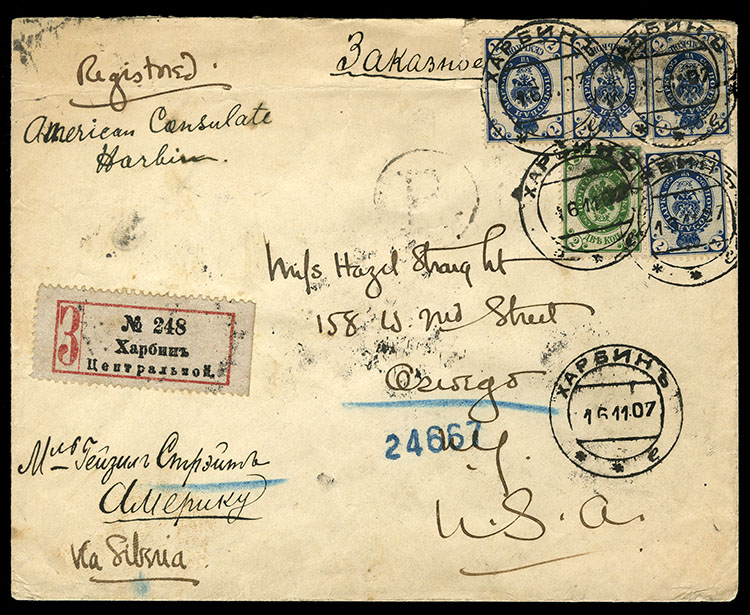 Registered.
Заказное
American Consulate
Harbin.
ХАРБИНЪ
ХАРБИНЪ
ХАРБИНЪ
16.11.07
ХАРБИНЪ
R
Miss Hazel Straight
158 W. 2nd Street
Oswego
N.Y.
U.S.A.
24667
З
№ 248
Харбинъ
Центральной.
ХАРБИНЪ
16.11.07
е
Гейзилъ Стрэйтъ
Америку
Via Siberia